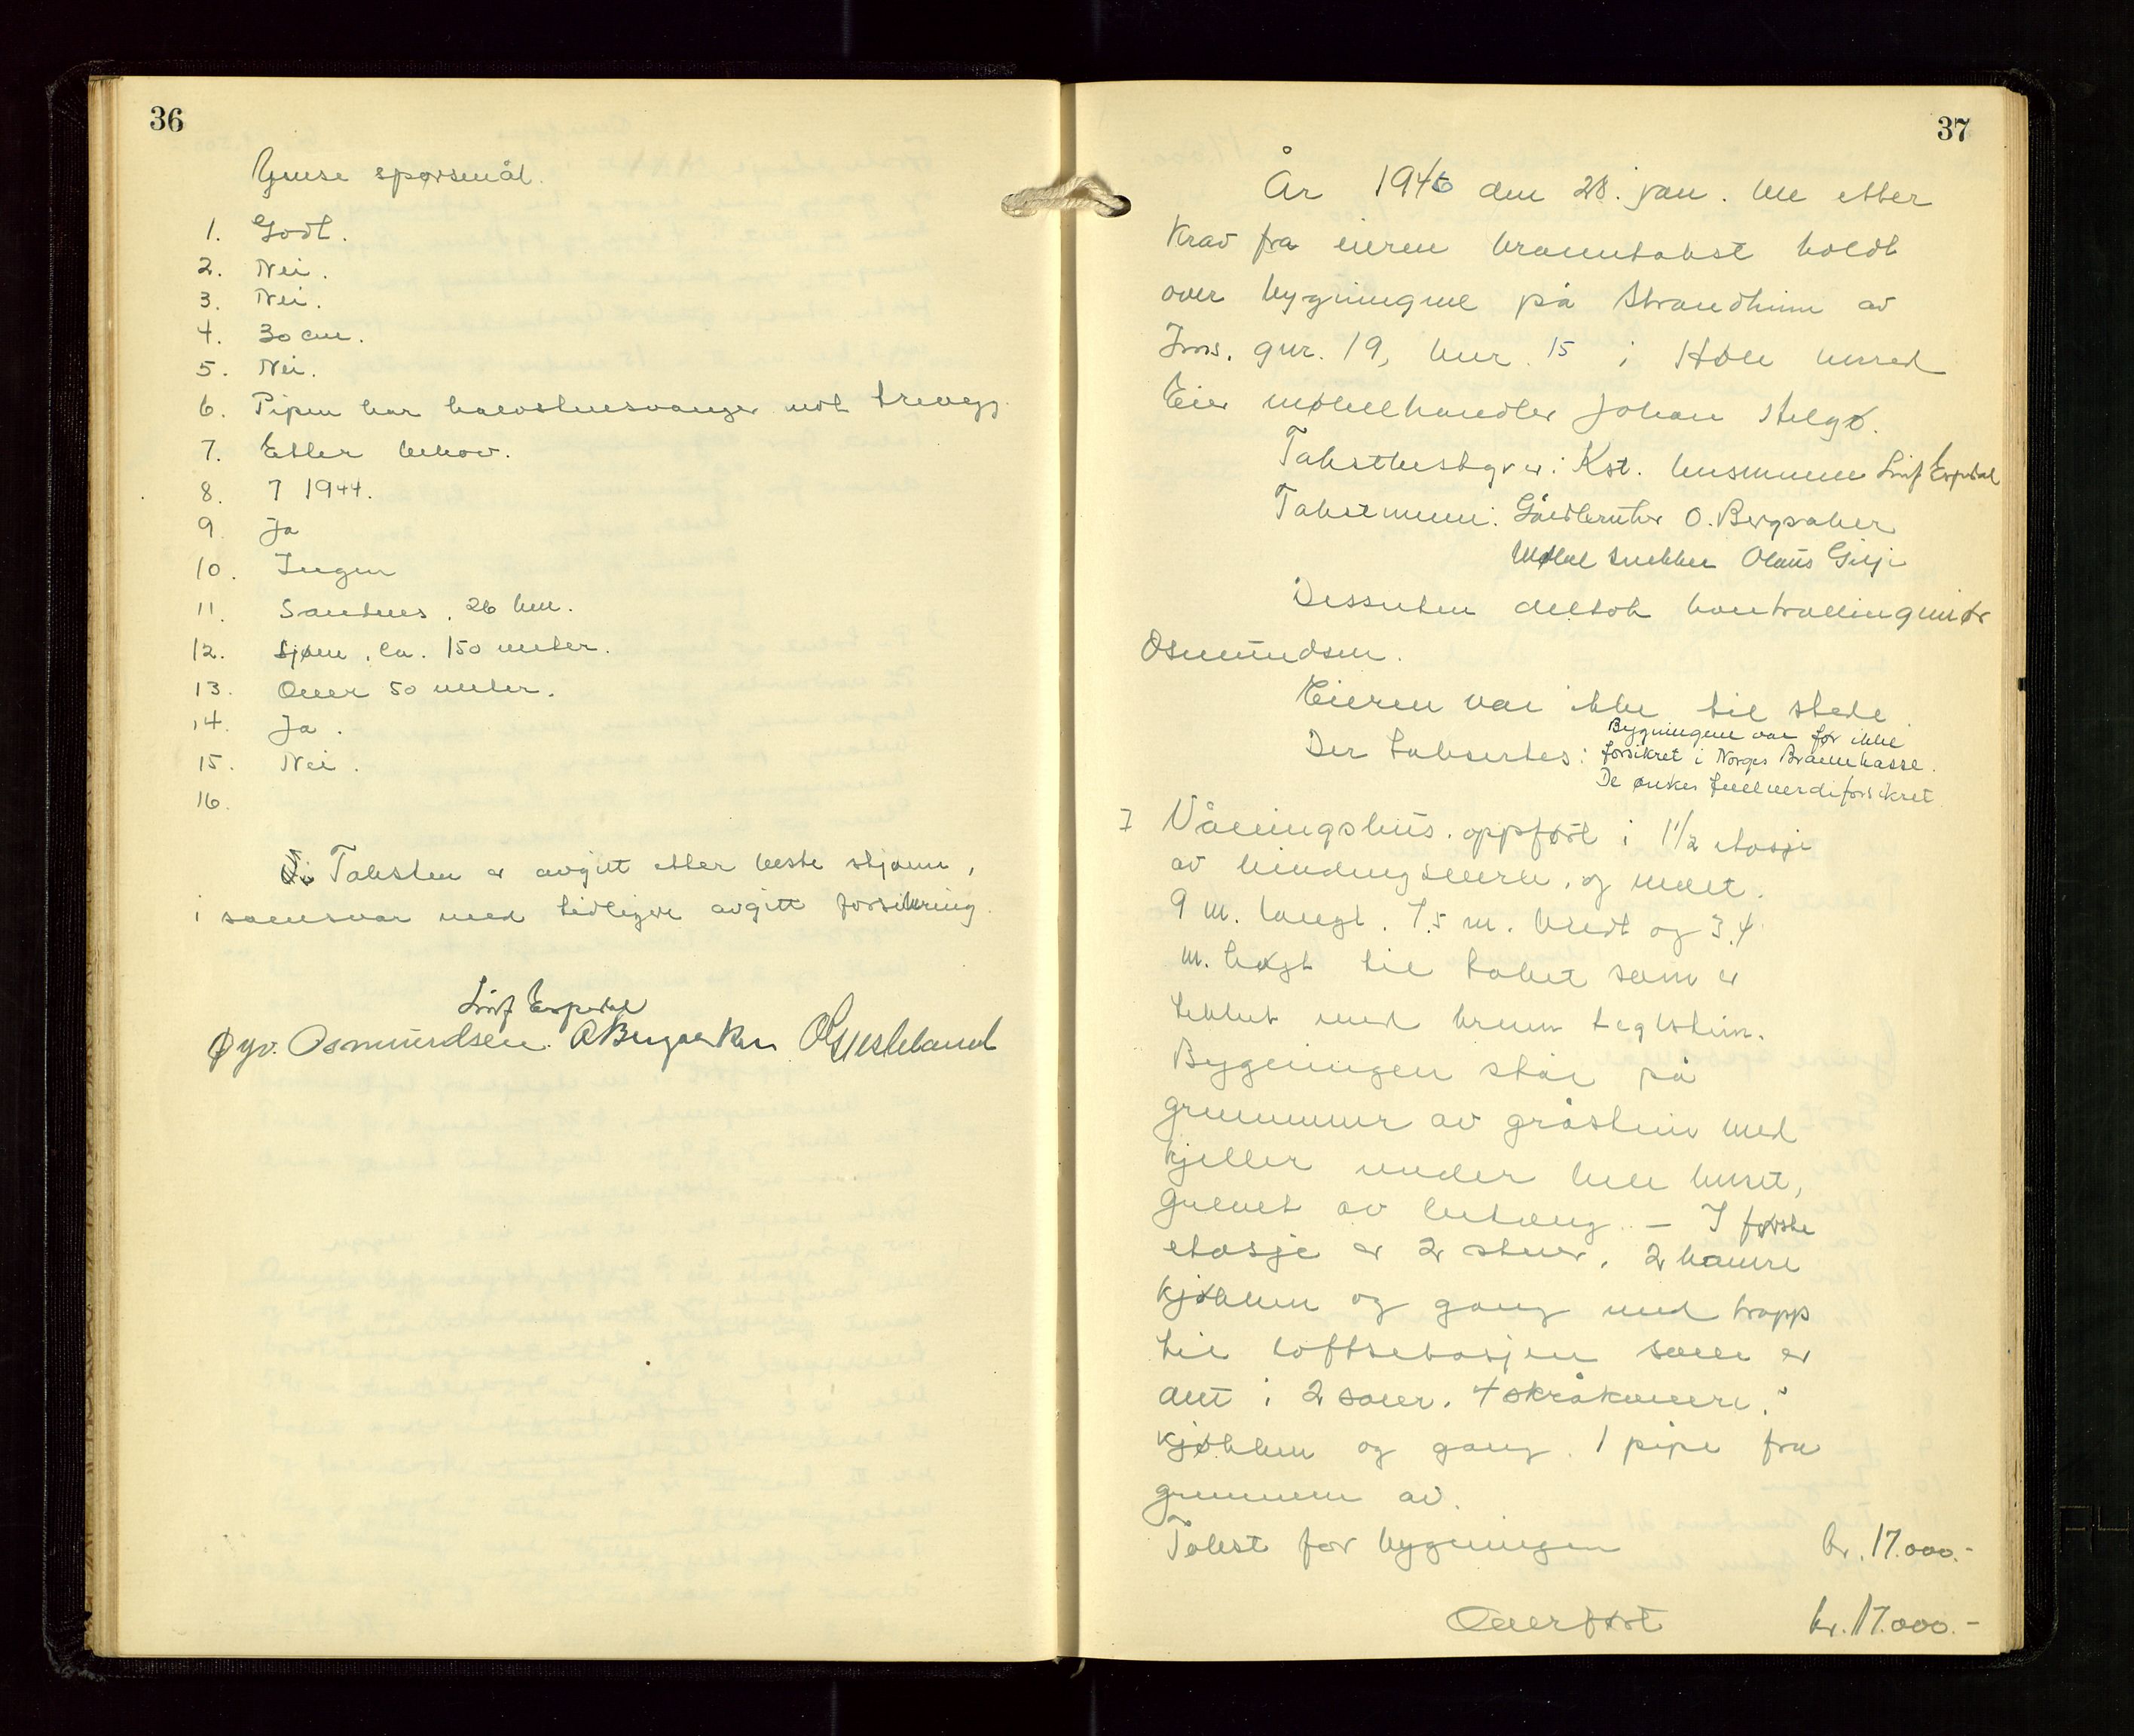 36
Ymse spørsmål.
1. Godt.
2. Nei.
3. Nei.
4. 30 cm.
5. Nei.
6. Pipen har halvstensvanger mot trevegg.
7. Etter behov.
8. ? 1944.
9. Ja
10. Ingen
11. Sandnes, 26 km.
12. Sjøen, ca. 150 meter.
13. Over 50 meter.
14. Ja.
15. Nei.
16.
Taksten er avgitt etter beste skjønn,
i samsvar med tidligere avgitt forsikring.
Leif Espedal
Øyv. Osmundsen. O Bergsaker O Gjesteland
37
År 1946 den 28. jan. ble etter
krav fra eieren branntakst holdt
over bygningene på Strandheim av
gnr. 19, bnr. 15 i Høle herred
Eier møbelhandler Johan Helgø.
Takstbestyrer: Kst. lensmann Leif Espedal
Takstmenn: Gårdbruker O. Bergsaker
Møbelsnekker Olaus Gilje
Dessuten deltok kontrollingeniør
Osmundsen.
Eieren var ikke til stede.
Der takseres: Bygningene var før ikke
forsikret i Norges Brannkasse.
De ønskes fullverdiforsikret
I Våningshus. oppført i 1 1/2 etasje
av bindingsverk, og målt.
9 m. langt. 7.5 m. bredt og 3.4
m. høgt til taket som er
tekket med brenn teglstein.
Bygningen står på
grunnmur av gråstein med
kjeller under hele huset,
gulvet av betong. – I første
etasje er 2 stuer, 2 kamre
kjøkken og gang med trapp
til loftsetasjen som er
delt i 2 sover. 4 skråkamre.
kjøkken og gang. 1 pipe fra
grunnen av.
Takst for bygningen kr. 17.000.-
Overført kr. 17.000.-